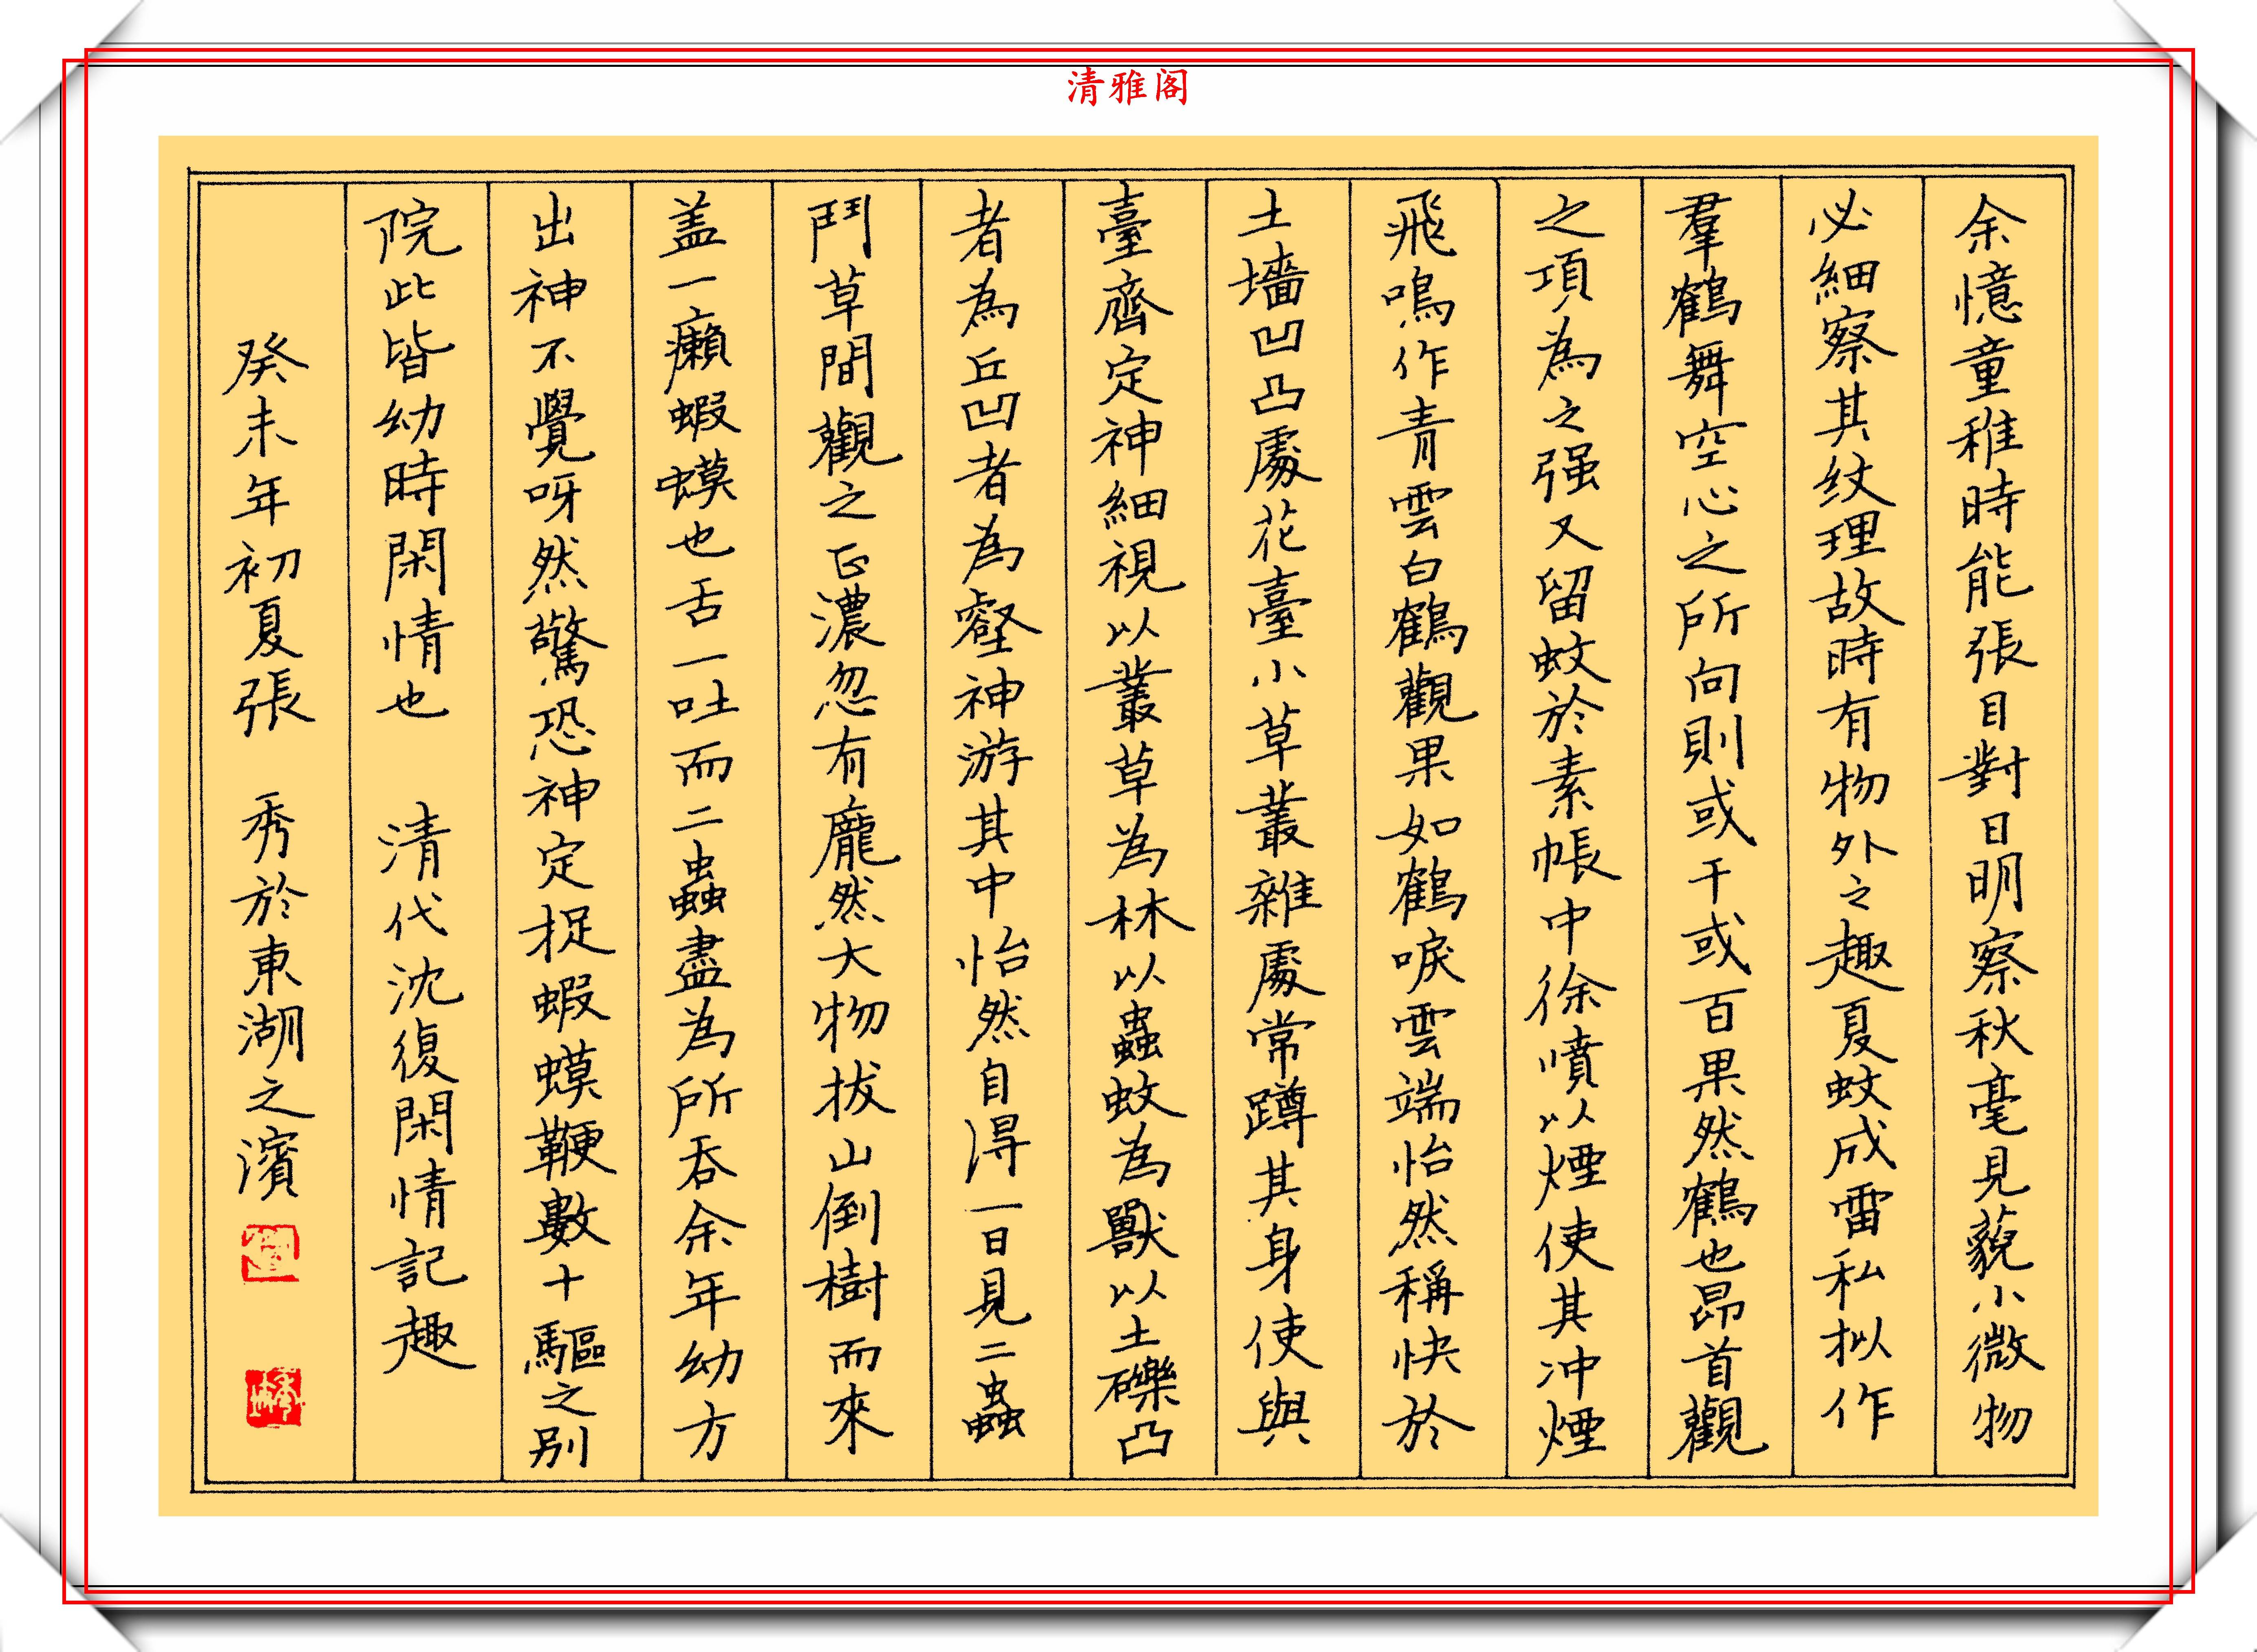 清雅阁
余憶童稚時能張目對日明察秋毫見藐小微物
必細察其纹理故時有物外之趣夏蚊成雷私拟作
羣鶴舞空心之所向則或千或百果然鶴也昂首觀
之項為之强又留蚊於素帳中徐噴以煙使其冲煙
飛鳴作青雲白鶴觀果如鶴唳雲端怡然稱快於
土墻凹凸處花臺小草叢雜處常蹲其身使與
臺齊定神細視以叢草為林以蟲蚊為獸以土礫凸
者為丘凹者為壑神游其中怡然自得一日見二蟲
鬥草間觀之正濃忽有龐然大物拔山倒樹而來
盖一癩蝦蟆也舌一吐而二蟲盡為所吞余年幼方
出神不覺呀然驚恐神定捉蝦蟆鞭數十驅之别
院此皆幼時閑情也 清代沈復閑情記趣
癸未年初夏張 秀於東湖之濱